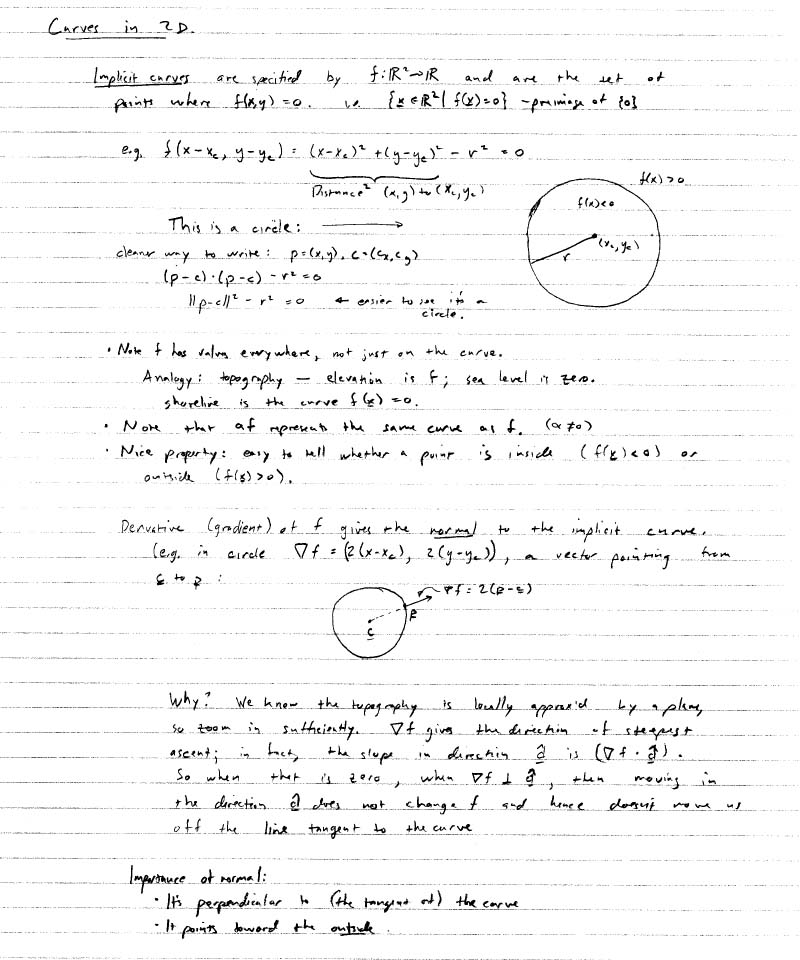 Curves in 2D.
Implicit curves are specified by f: ℝ²→ℝ and are the set of
points where f(x,y) = 0. i.e. {x ∈ ℝ² | f(x) = 0} - preimage of {0}
e.g. f(x-x_c, y-y_c) = (x-x_c)² + (y-y_c)² - r² = 0
Distance² (x,y) to (x_c, y_c)
f(x) > 0
f(x) < 0
(x_c, y_c)
r
This is a circle: →
cleaner way to write: p=(x,y), c=(c_x, c_y)
(p-c)·(p-c) - r² = 0
||p-c||² - r² = 0 ← easier to see it's a
circle.
• Note f has values everywhere, not just on the curve.
Analogy: topography — elevation is f; sea level is zero.
shoreline is the curve f(x) = 0.
• Note that αf represents the same curve as f. (α ≠ 0)
• Nice property: easy to tell whether a point is inside (f(x) < 0) or
outside (f(x) > 0).
Derivative (gradient) of f gives the normal to the implicit curve.
(e.g. in circle ∇f = (2(x-x_c), 2(y-y_c)), a vector pointing from
c to p :
∇f = 2(p-c)
p
c
Why? We know the topography is locally approx'd by a plane,
so zoom in sufficiently. ∇f gives the direction of steepest
ascent; in fact, the slope in direction d̂ is (∇f · d̂).
So when that is zero, when ∇f ⊥ d̂, then moving in
the direction d̂ does not change f and hence doesn't move us
off the line tangent to the curve
Importance of normal:
• It's perpendicular to (the tangent of) the curve
• It points toward the outside.